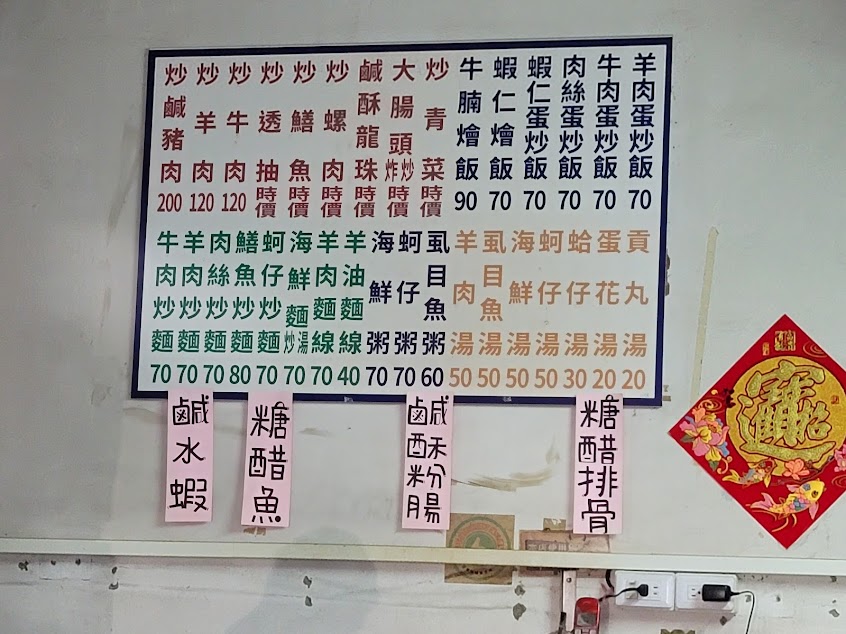 炒鹹豬肉200
炒羊肉120
炒牛肉120
炒透抽時價
炒鱔魚時價
炒螺肉時價
鹹酥龍珠時價
大腸頭炸炒時價
炒青菜時價
牛腩燴飯90
蝦仁燴飯70
蝦仁蛋炒飯70
肉絲蛋炒飯70
牛肉蛋炒飯70
羊肉蛋炒飯70
牛肉炒麵70
羊肉炒麵70
肉絲炒麵70
鱔魚炒麵80
蚵仔炒麵70
海鮮麵炒湯70
羊肉麵線70
羊油麵線40
海鮮粥70
蚵仔粥70
虱目魚粥60
羊肉湯50
虱目魚湯50
海鮮湯50
蚵仔湯50
蛤仔湯30
蛋花湯20
貢丸湯20
鹹水蝦
糖醋魚
鹹酥粉腸
糖醋排骨